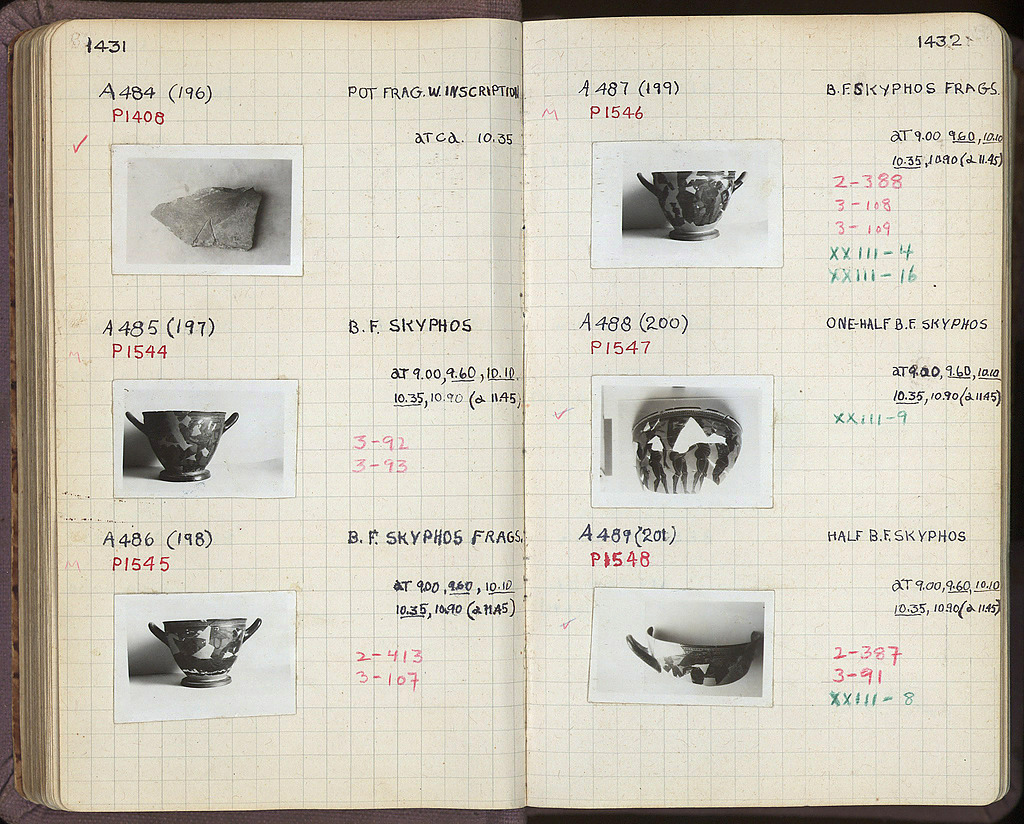 1431
A 484 (196)
P1408
POT FRAG. W. INSCRIPTION
AT Ca. 10.35
A 485 (197)
P1544
B. F. SKYPHOS
AT 9.00, 9.60, 10.10
10.35, 10.90 (& 11.45)
3-92
3-93
M
A 486 (198)
P1545
B. F. SKYPHOS FRAGS.
AT 9.00, 9.60, 10.10
10.35, 10.90 (& 11.45)
2-413
3-107
M
1432
A 487 (199)
P1546
M
B.F. SKYPHOS FRAGS.
AT 9.00, 9.60, 10.10
10.35, 10.90 (& 11.45)
2-388
3-108
3-109
XXIII-4
XXIII-16
A 488 (200)
P1547
ONE-HALF B.F. SKYPHOS
AT 9.00, 9.60, 10.10
10.35, 10.90 (& 11.45)
XXIII-9
A 489 (201)
P1548
HALF B.F. SKYPHOS
AT 9.00, 9.60, 10.10
10.35, 10.90 (& 11.45)
2-387
3-91
XXIII-8